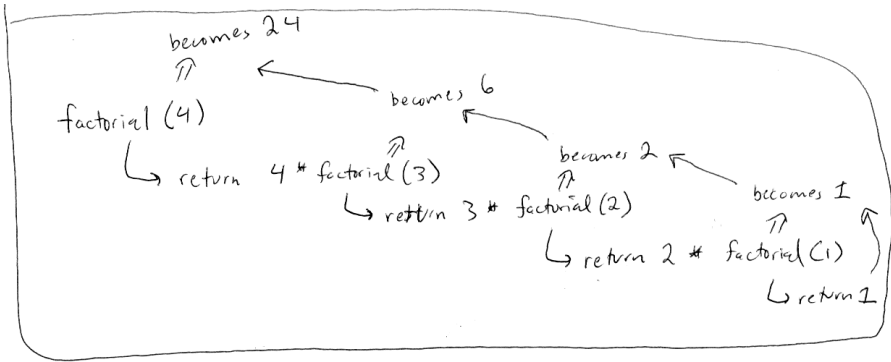 becomes 24
becomes 6
factorial (4)
becomes 2
return 4 * factorial (3)
becomes 1
return 3 * factorial (2)
return 2 * factorial (1)
return 1